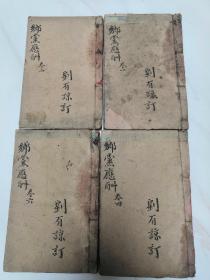 鄉黨應酬 卷二
劉有諒訂
鄉黨應酬 卷三
劉有諒訂
鄉黨應酬 卷六
劉有諒訂
鄉黨應酬 卷四
劉有諒訂